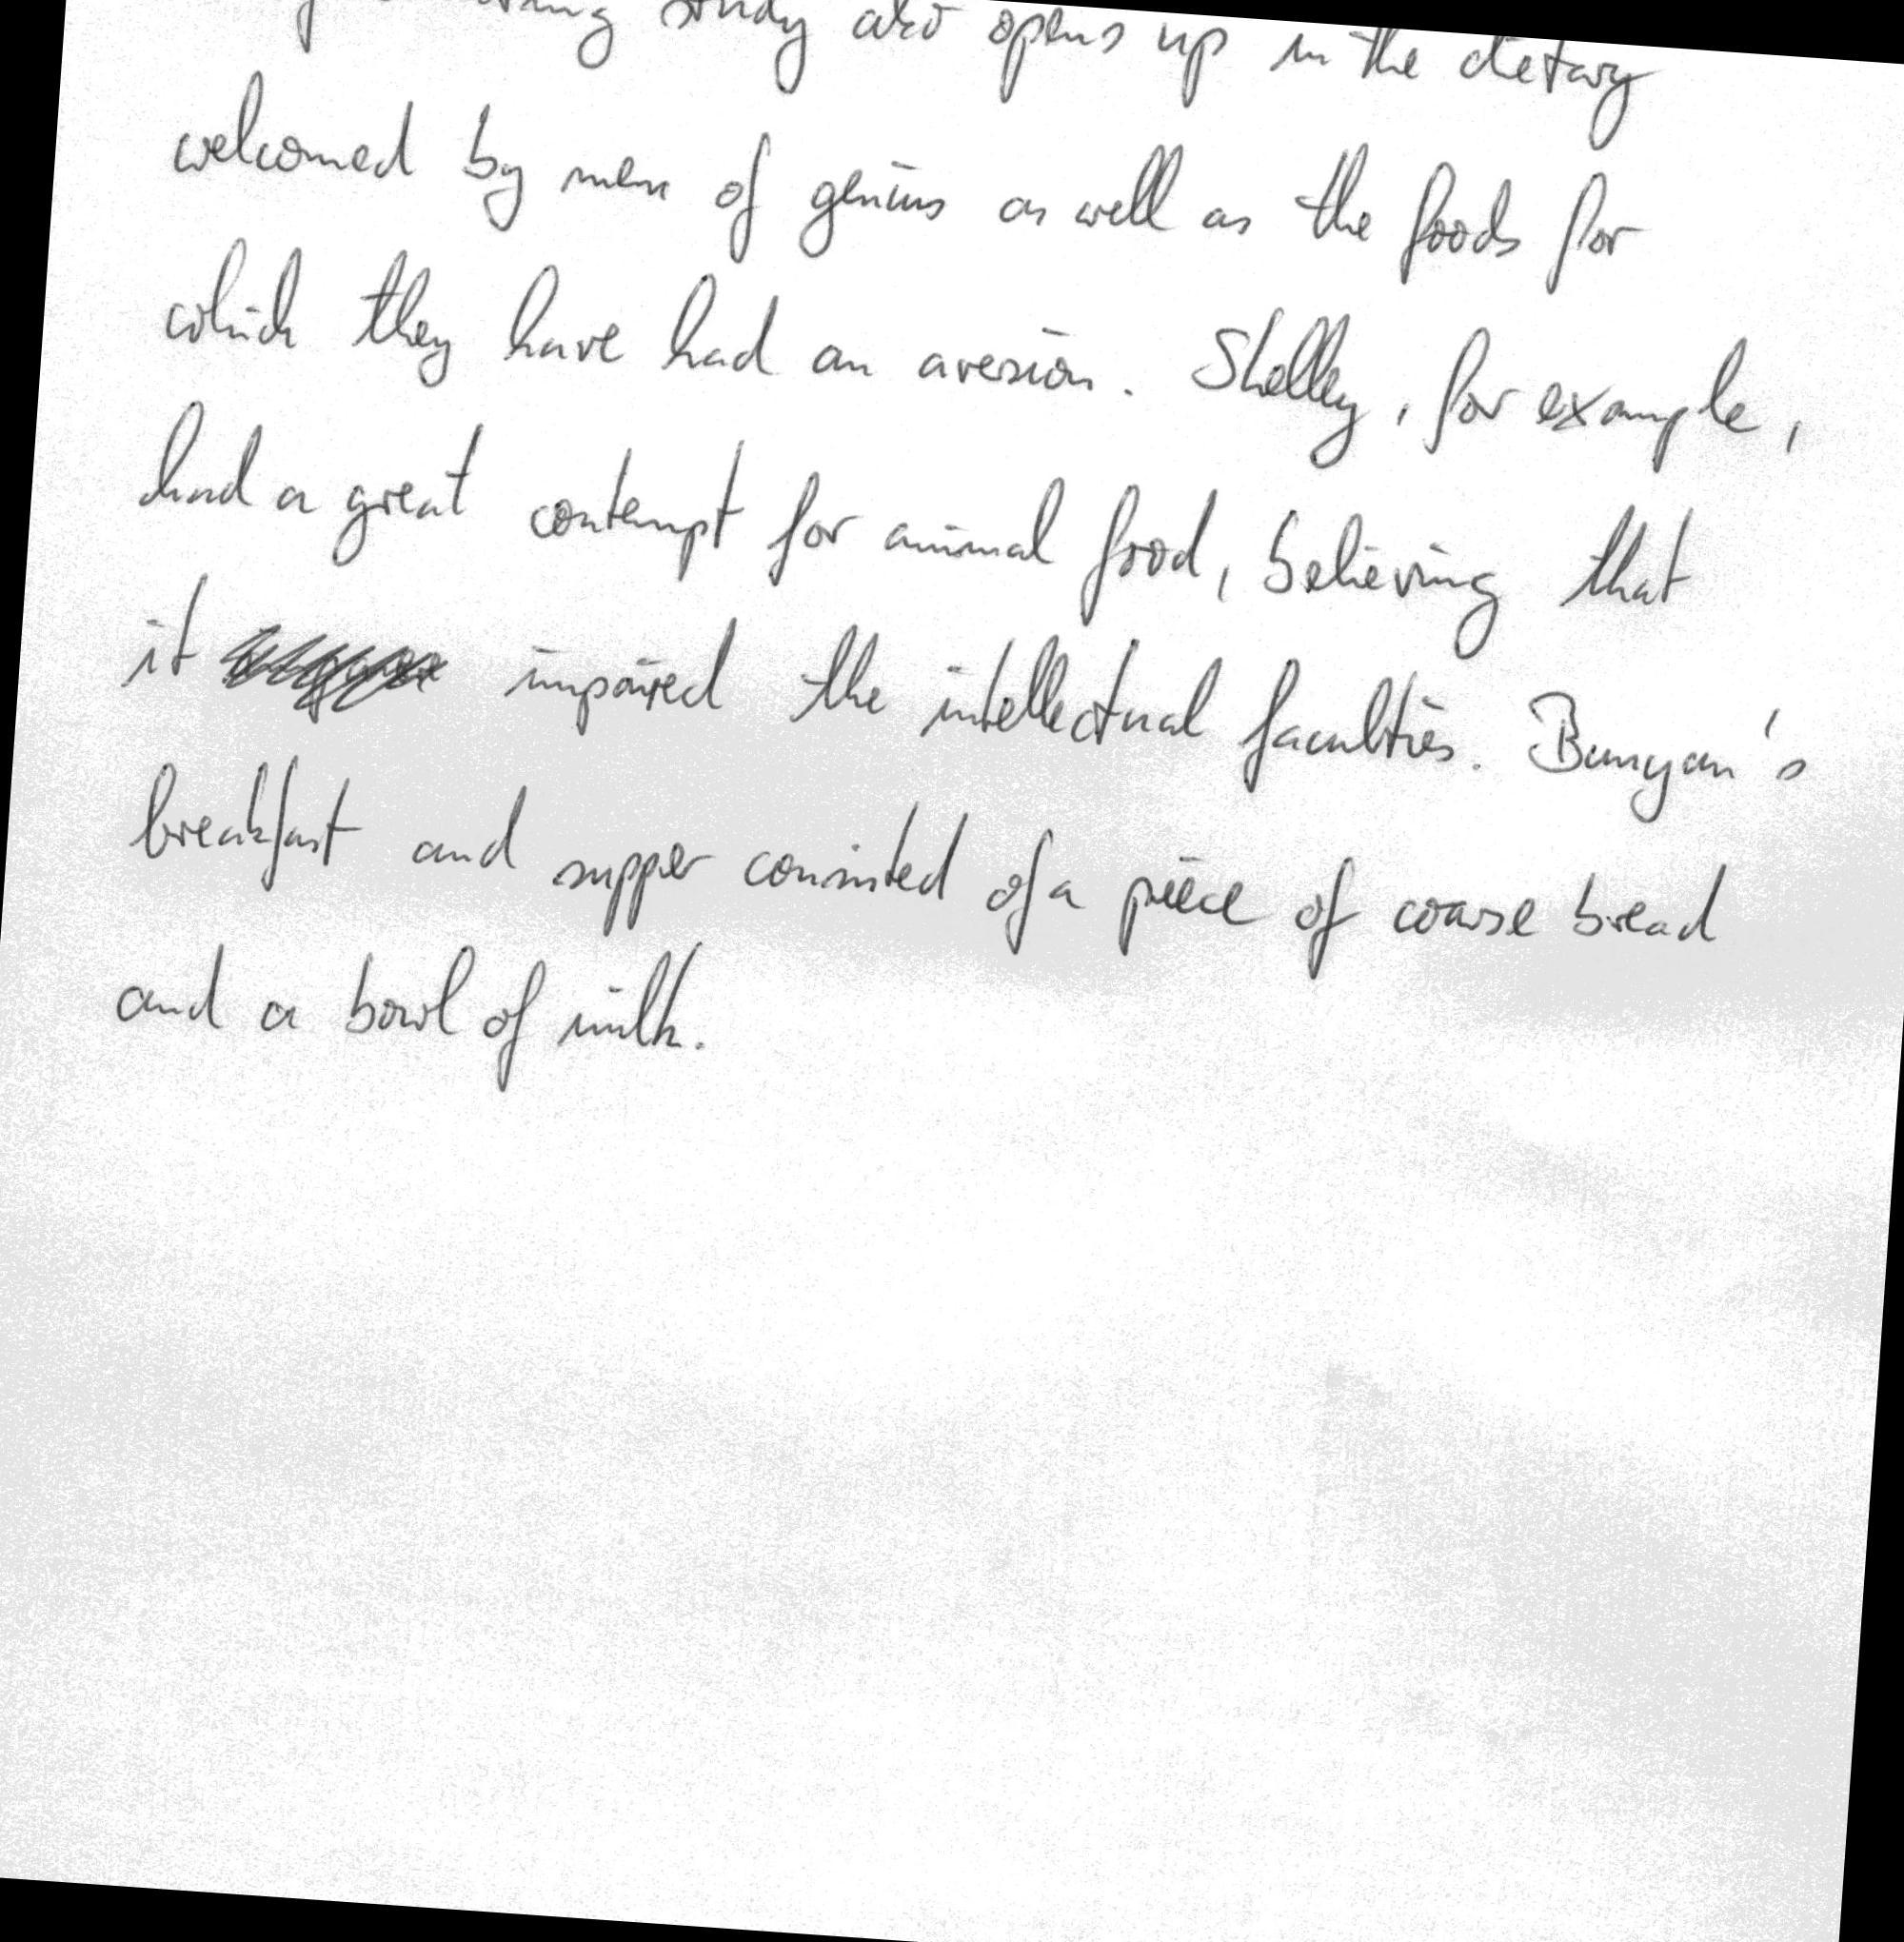 study also opens up in the dietary
welcomed by men of genius as well as the foods for
which they have had an aversion. Shelley, for example,
had a great contempt for animal food, believing that
it impaired the intellectual faculties. Bunyan's
breakfast and supper consisted of a piece of coarse bread
and a bowl of milk.